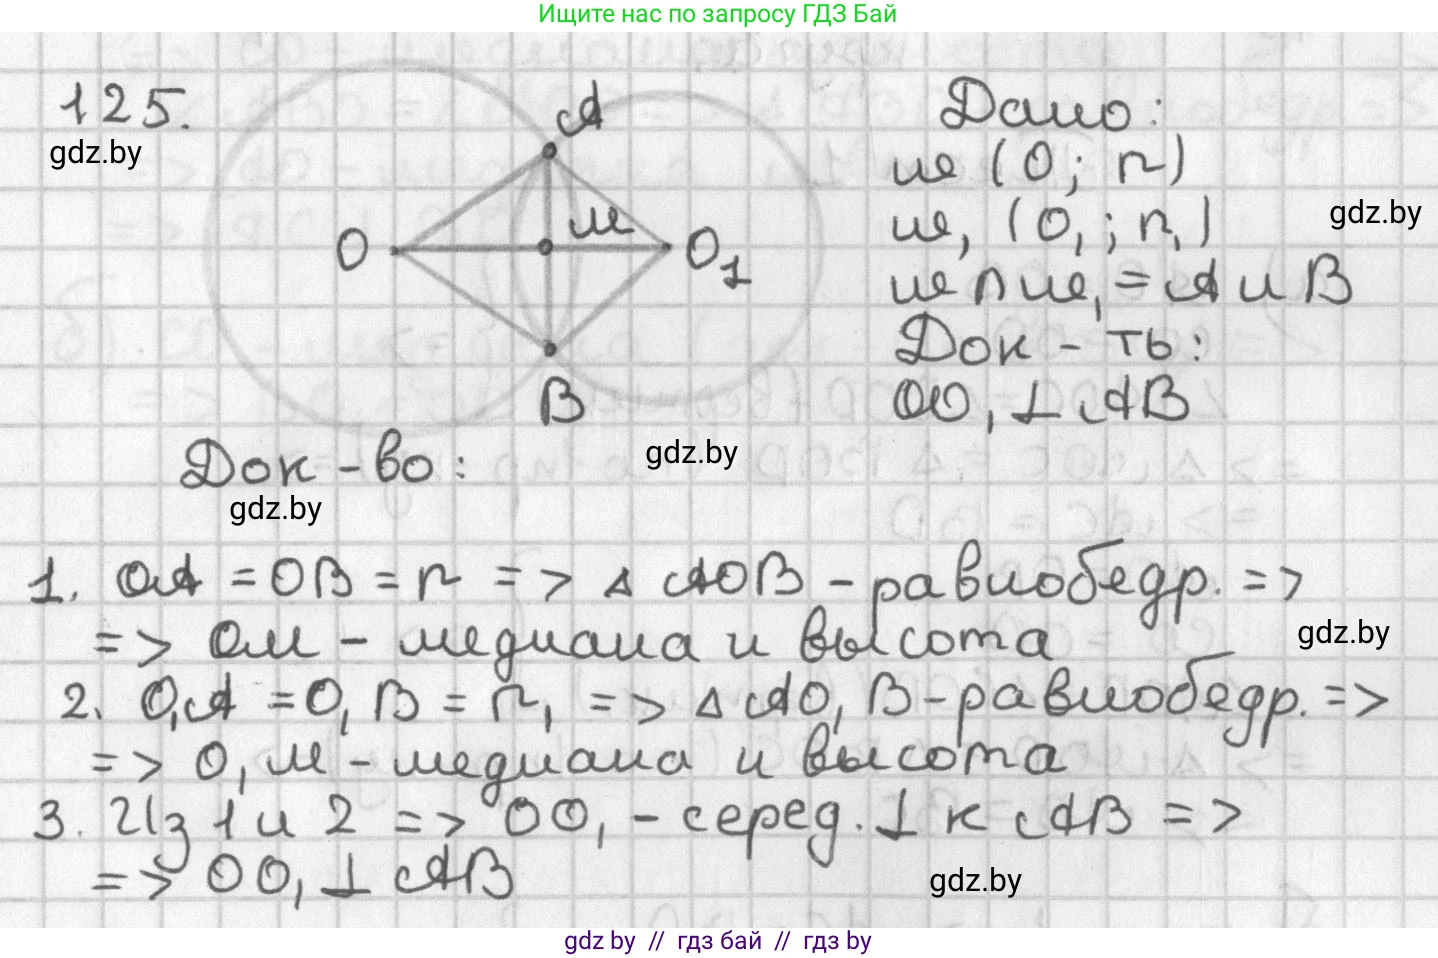 Ищите нас по запросу ГДЗ Бай
125.
gdz.by
A
O
M
O₁
B
Дано:
ω (O; r)
gdz.by
ω₁ (O₁; r₁)
ω ∩ ω₁ = A и B
Док - ть:
OO₁ ⊥ AB
Док - во:
gdz.by
gdz.by
1. OA = OB = r => △ AOB - равнобедр. =>
=> OM - медиана и высота
gdz.by
2. O₁A = O₁B = r₁ => △ AO₁B - равнобедр. =>
=> O₁M - медиана и высота
3. Из 1 и 2 => OO₁ - серед. ⊥ к AB =>
=> OO₁ ⊥ AB
gdz.by
gdz by // гдз бай // гдз by